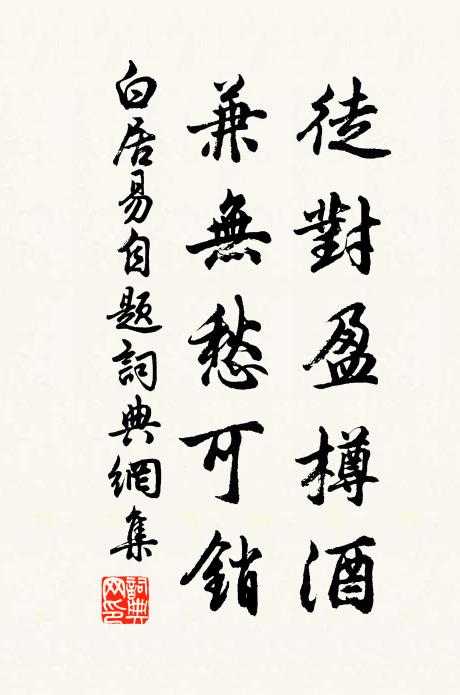 徒對盈樽酒
兼無愁可銷
白居易自題詞典網集
詞典網印